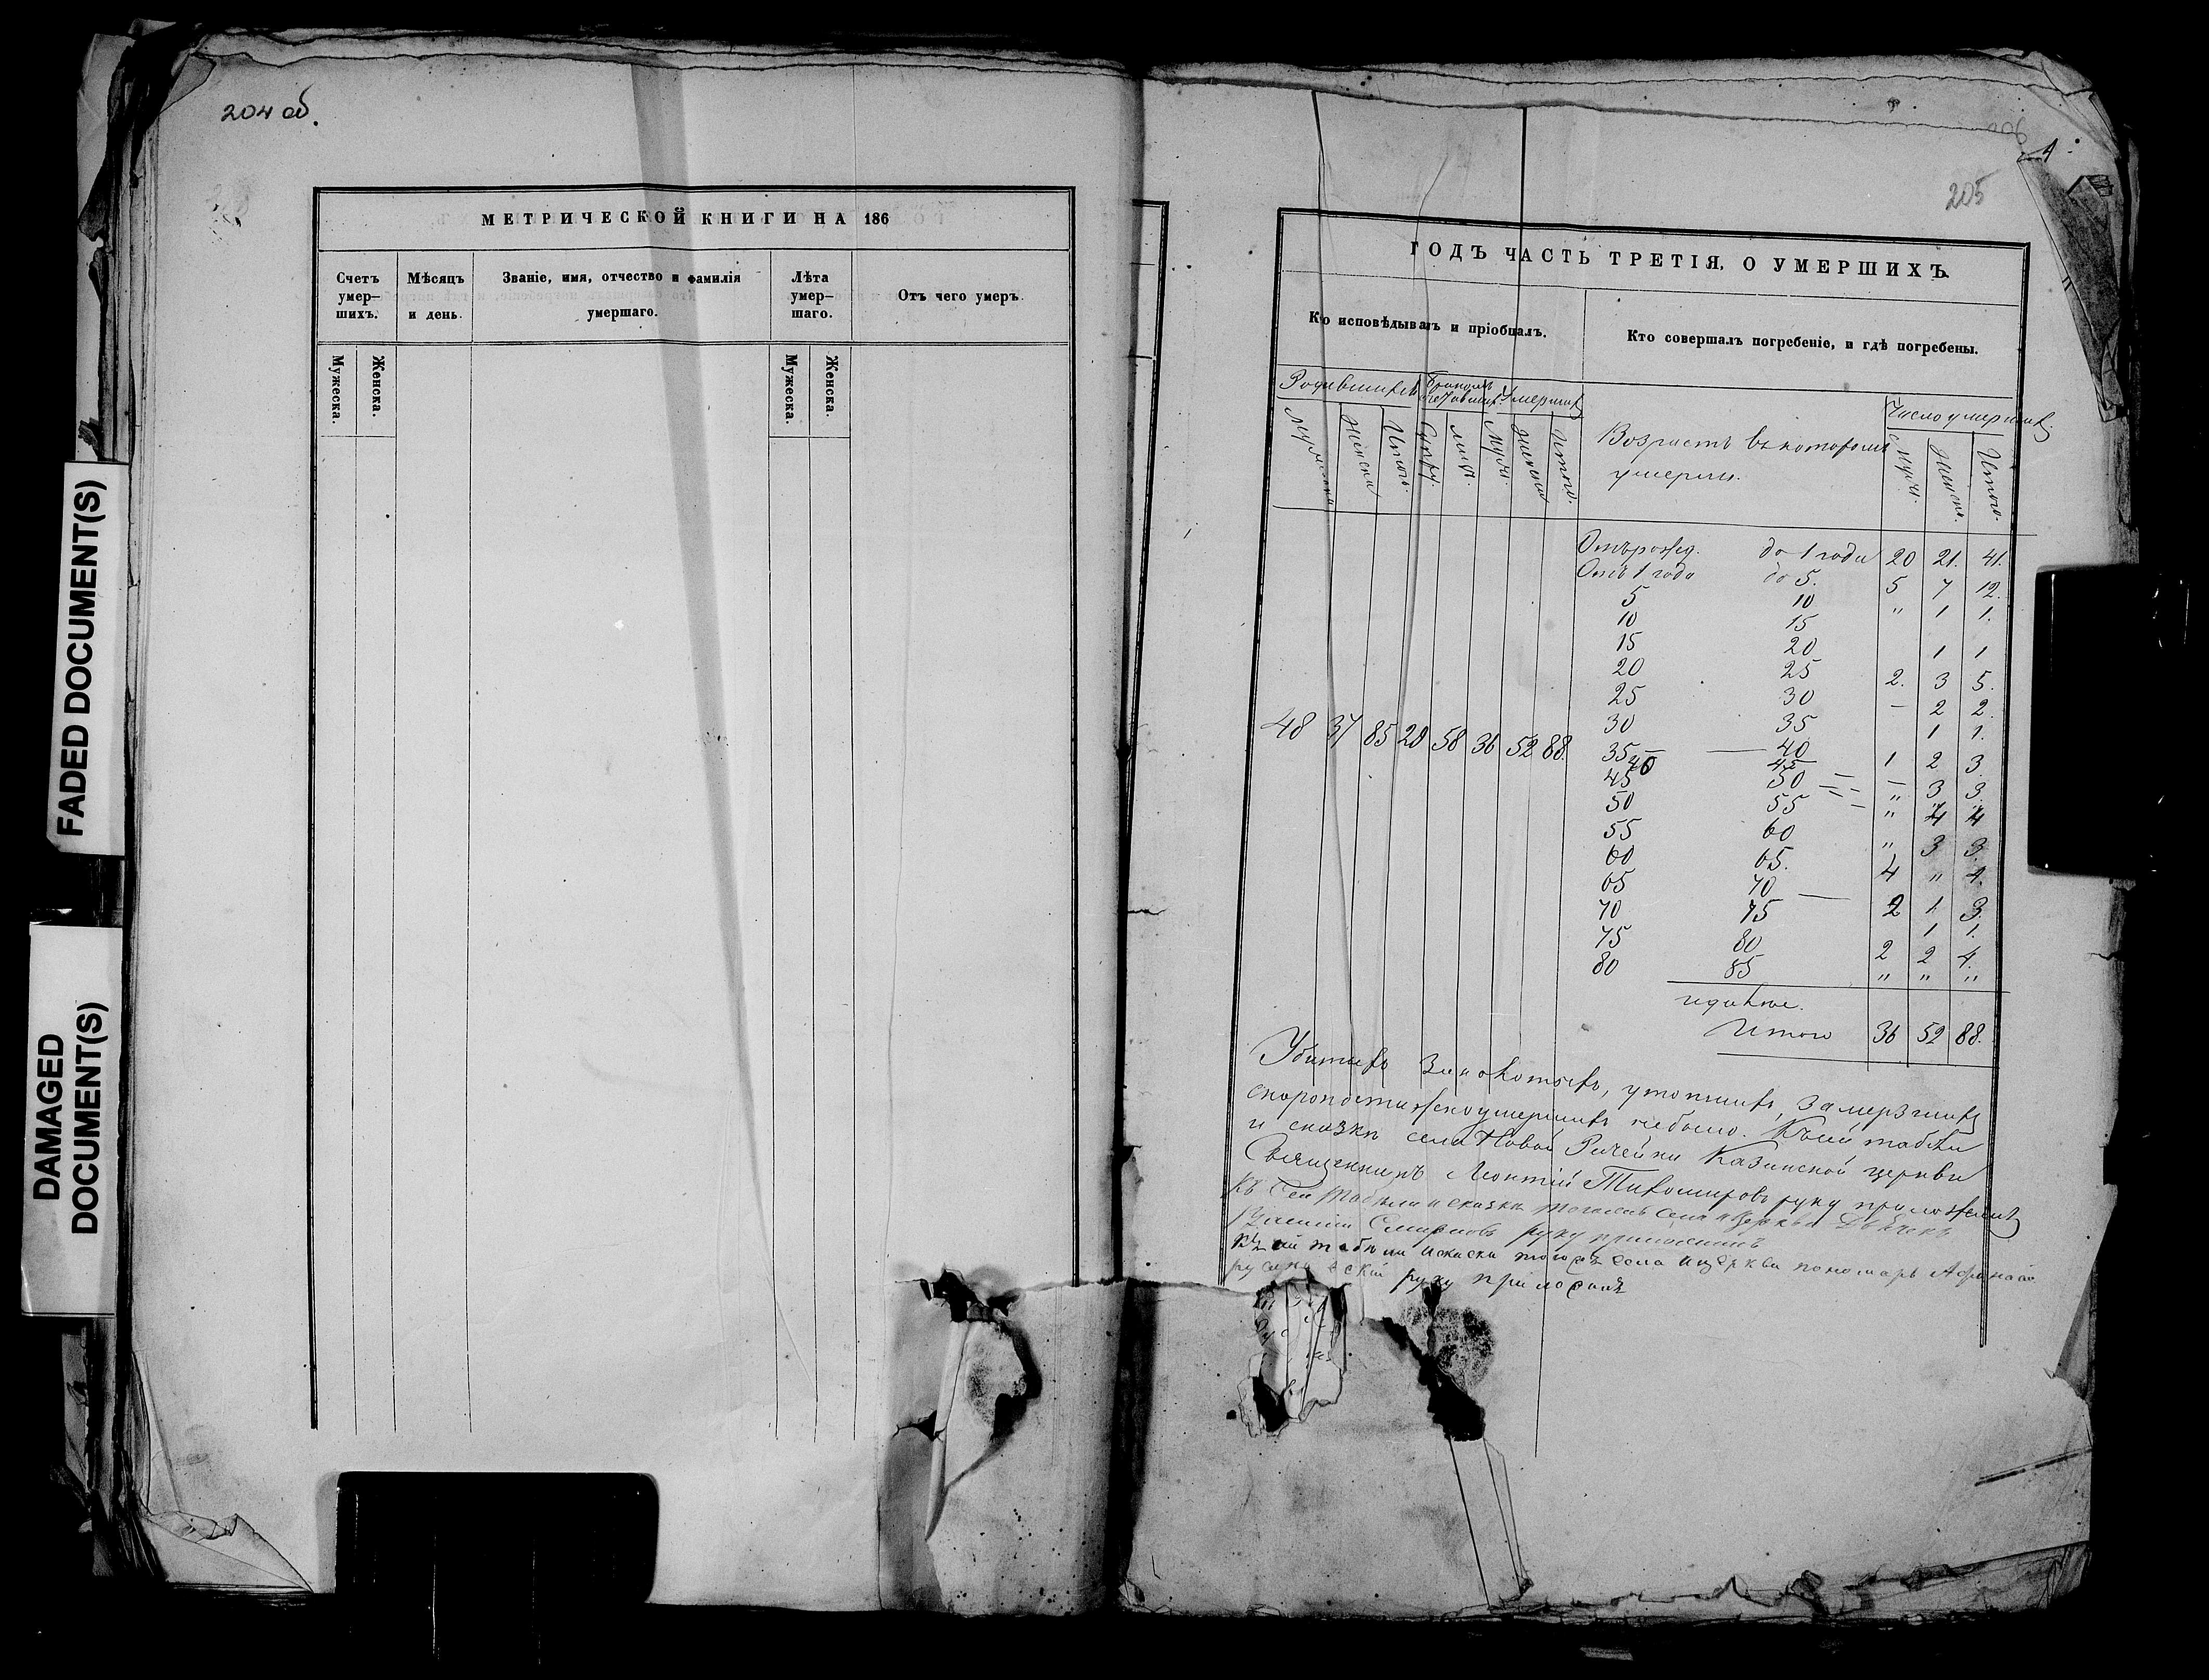 204 об.
МЕТРИЧЕСКОЙ КНИГИ НА 186
Счетъ умер-
шихъ.
Мѣсяцъ
и день.
Званіе, имя, отчество и фамилія
умершаго.
Лѣта
умер-
шаго.
Отъ чего умеръ.
Мужеска.
Женска.
Мужеска.
Женска.
FADED DOCUMENT(S)
DAMAGED
DOCUMENT(S)
206
205
ГОДЪ ЧАСТЬ ТРЕТІЯ, О УМЕРШИХЪ.
Кто исповѣдывалъ и пріобщалъ.
Кто совершалъ погребеніе, и гдѣ погребены.
Родившихся
Умершихъ
Число умерших.
Женска
Итого.
Супру.
Муж.
Женска
Итого.
Возрастъ въ которомъ
умерли.
Муж.
Женско.
Итого.
От рожд. до 1 года 20 21. 41.
Отъ 1 года до 5. 5 7 12.
5 10 " 1 1.
10 15
15 20 1 1
20 25 2. 3 5.
25 30 – 2 2.
30 35 1 1.
48 37 85 28 58 36 52 88.
35 — 40 1 2 3.
40 45 – 3 3.
45 50 " 4 4
50 55 " 3 3.
55 60 4 " 4.
60 65.
65 70 — 2 1 3.
70 75 1 1.
75 80 2 2 4.
80 85 " " "
и далѣе.
Итого 36 52 88.
Убитыхъ утопшихъ, замерзшихъ
скоропостижно умершихъ небыло. Къ сей табели
и сказкѣ села Новой Рачейки Казанской церкви
Священникъ Леонтій Тихомировъ руку приложилъ
Къ сей табели и сказкѣ тогожъ села и Церкви Дьячекъ
Смирновъ руку приложилъ
Къ сей табели и сказки тогожъ села и церкви пономарь Афанасій
руку приложилъ